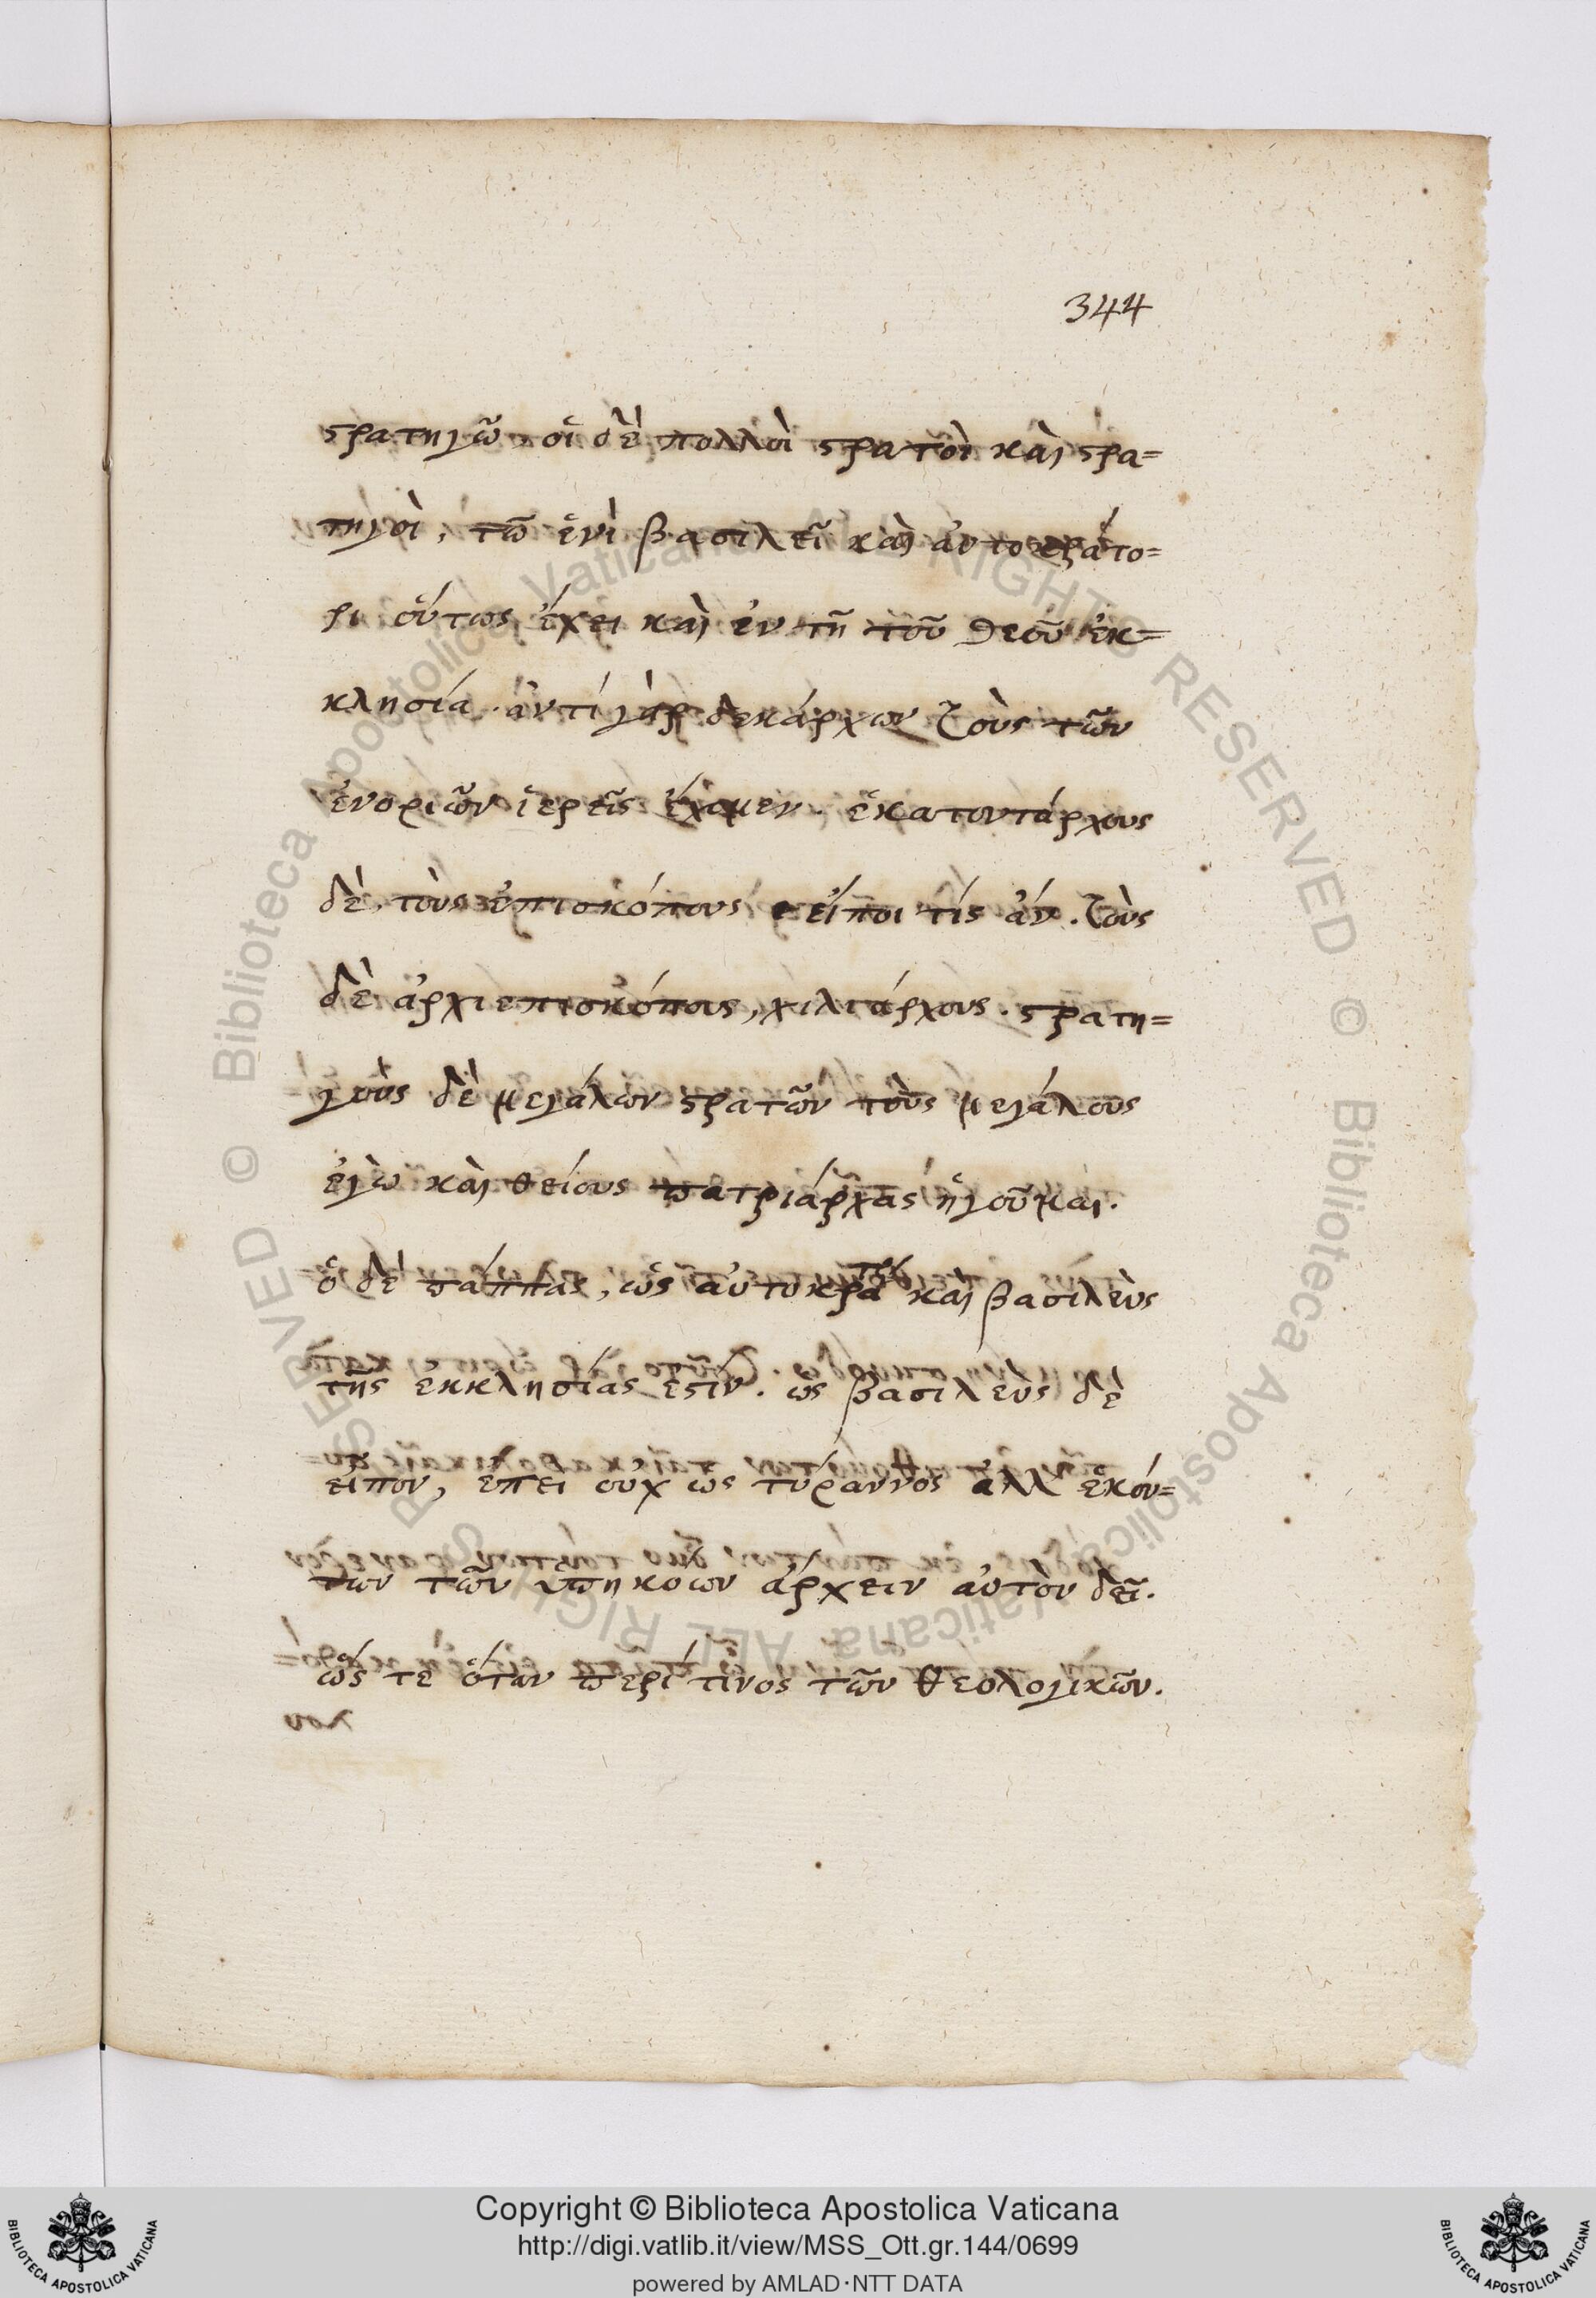 344
στρατηγῶ, οἱ δὲ πολλοὶ στρατοὶ καὶ στρα=
τηγοὶ, τῶ ἑνὶ βασιλεῖ καὶ αὐτοκράτο=
ρι οὕτως ἔχει καὶ ἐν τῆ τοῦ θεοῦ ἐκ=
κλησία. ἀντί γὰρ δεκάρχων τοὺς τῶν
ἐνοριῶν ἱερεῖς ἔχομεν. ἑκατοντάρχους
δὲ, τοὺς ἐπισκόπους εἴποι τίς ἄν. τοὺς
δὲ ἀρχιεπισκόπους, χιλιάρχους. στρατη=
γοὺς δὲ μεγάλων στρατῶν τοὺς μεγάλους
ἐγὼ καὶ θείους πατριάρχας ἡγοῦμαι.
ὁ δὲ πάππας, ὡς αὐτοκράτωρ καὶ βασιλεὺς
τῆς ἐκκλησίας ἐστίν. ὡς βασιλεὺς δὲ
εἶπον, ἐπεὶ οὐχ ὡς τύραννος ἀλλ' ἑκόν=
των τῶν ὑπηκόων ἄρχειν αὐτὸν δεῖ.
ὥς τε ὅταν περί τινος τῶν θεολογικῶν.
Copyright © Biblioteca Apostolica Vaticana
http://digi.vatlib.it/view/MSS_Ott.gr.144/0699
powered by AMLAD·NTT DATA
BIBLIOTECA APOSTOLICA VATICANA
BIBLIOTECA APOSTOLICA VATICANA
© Biblioteca Apostolica Vaticana ALL RIGHTS RESERVED
© Biblioteca Apostolica Vaticana ALL RIGHTS RESERVED